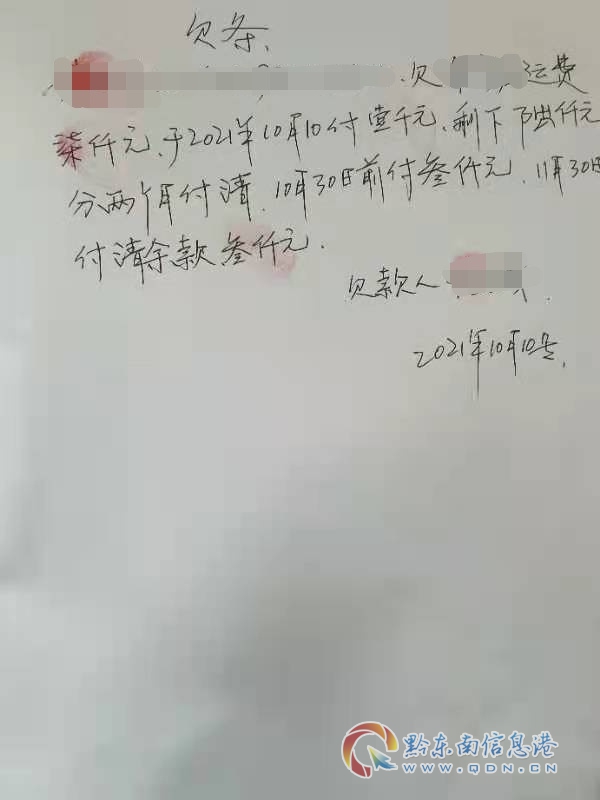 欠条.
欠 运费
柒仟元、于2021年10月10付壹千元、剩下陆仟元
分两个月付清.10月30日前付叁仟元.11月30日
付清余款叁仟元.
欠款人
2021年10月10号.
黔东南信息港
www.QDN.CN